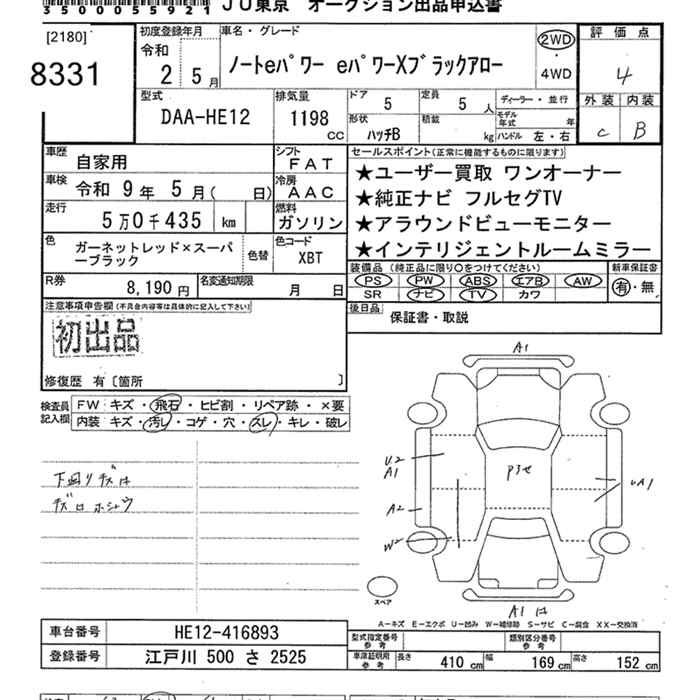 350055921 JU東京 オークション出品申込書
[2180]
8331
初度登録年月
令和
2 5月
車名・グレード
ノートeパワー eパワーXブラックアロー
2WD
・
4WD
評価点
4
外装 内装
C B
型式
DAA-HE12
排気量
1198
CC
ドア
5
定員
5 人
形状
ハッチB
積載
kg
ディーラー・並行
モデル年式 年
ハンドル 左・右
車歴
自家用
車検
令和 9年 5月( 日)
走行
5万0千435 km
色
ガーネットレッド×スーパーブラック
色替
シフト
FAT
冷房
AAC
燃料
ガソリン
色コード
XBT
R券
8,190円
名変通知期限
月 日
セールスポイント(正常に機能するものに限ります)
★ユーザー買取 ワンオーナー
★純正ナビ フルセグTV
★アラウンドビューモニター
★インテリジェントルームミラー
装備品 (純正品に限り○をつけてください)
PS PW ABS エアB AW
SR ナビ TV カワ
新車保証書
有・無
後日品
保証書・取説
注意事項申告欄(不具合内容等は具体的に記入して下さい)
初出品
修復歴 有〔箇所 〕
検査員記入欄
FW キズ・飛石・ヒビ割・リペア跡・×要
内装 キズ・汚レ・コゲ・穴・スレ・キレ・破レ
下回りキズ
A1
U2
A1
A2
W2
UA1
A1
スペア
A―キズ E―エクボ U―凹み W―補修跡 S―サビ C―腐食 XX―交換済
車台番号
HE12-416893
登録番号
江戸川 500 さ 2525
型式指定番号
参考
類別区分番号
参考
車庫証明用
参考
長さ
410 cm
幅
169 cm
高さ
152 cm